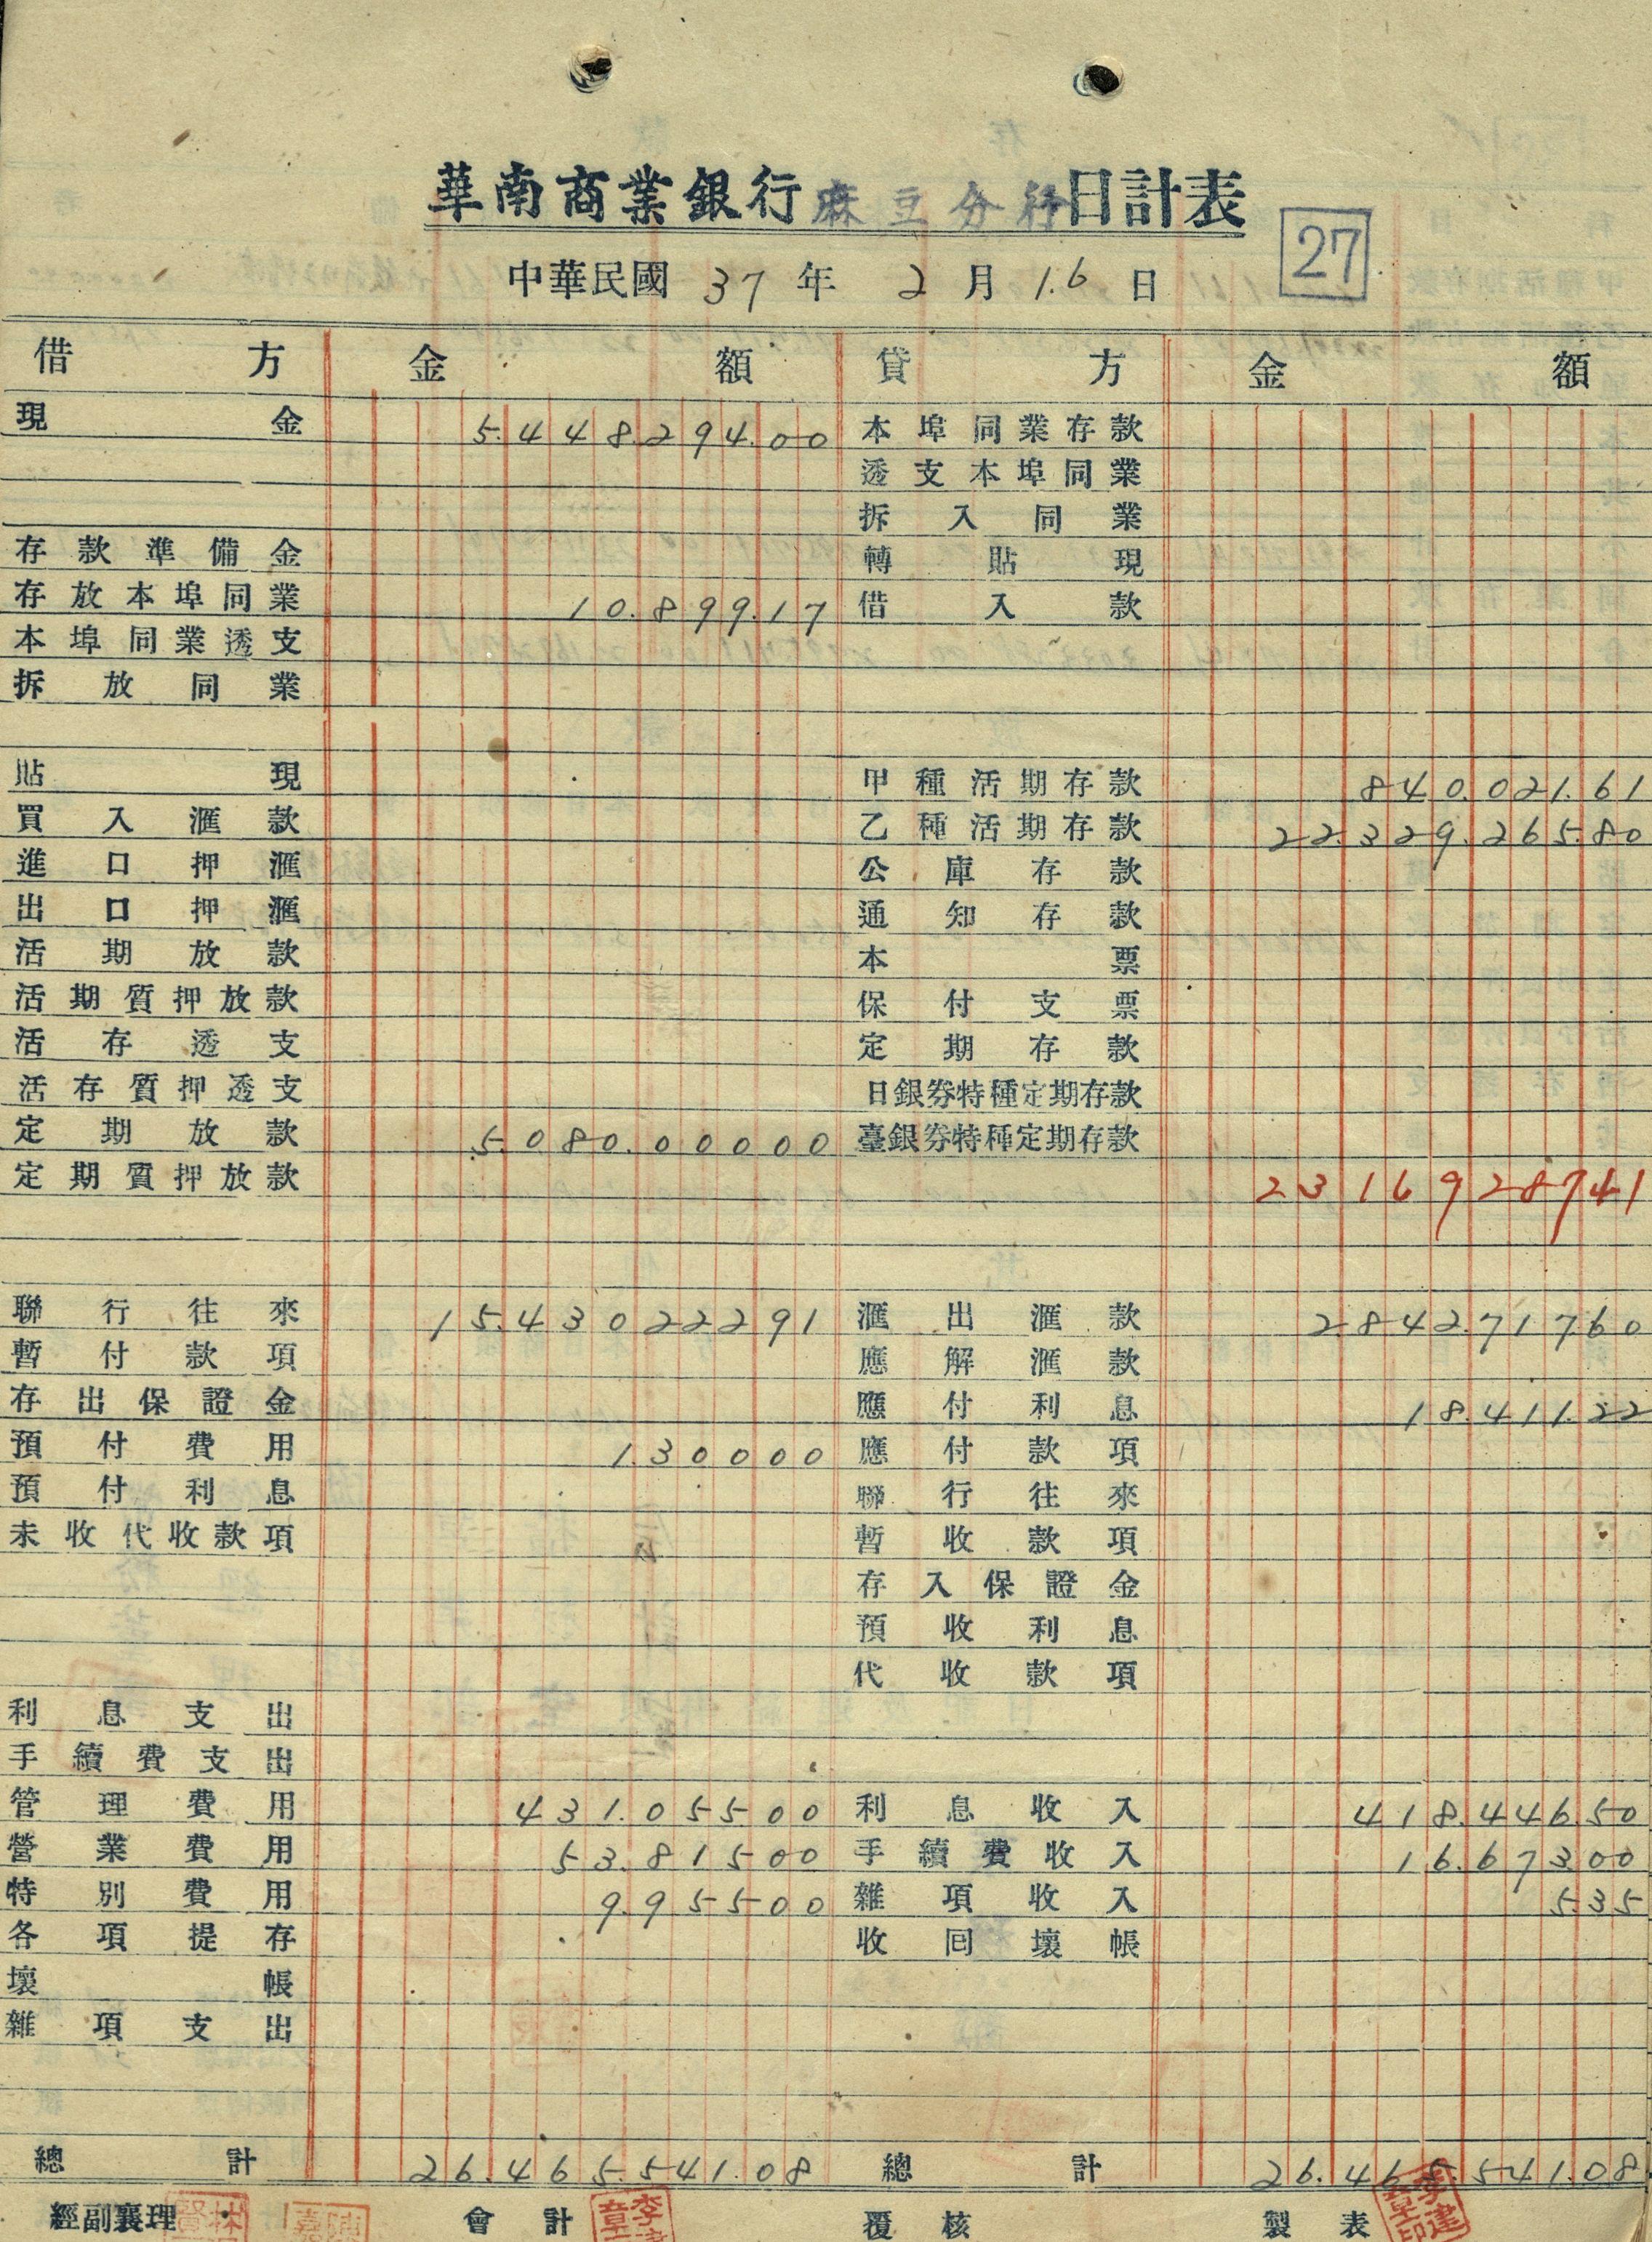 華南商業銀行麻豆分行日計表
27
中華民國 37 年 2 月 1.6 日
借方 金額 貸方 金額
現金 5.448.294.00 本埠同業存款
透支本埠同業
拆入同業
存款準備金 轉貼現
存放本埠同業 10.899.17 借入款
本埠同業透支
拆放同業
貼現 甲種活期存款 840.021.61
買入滙款 乙種活期存款 22.329.265.80
進口押滙 公庫存款
出口押滙 通知存款
活期放款 本票
活期質押放款 保付支票
活存透支 定期存款
活存質押透支 日銀券特種定期存款
定期放款 5.080.00000 臺銀券特種定期存款
定期質押放款 2316928741
聯行往來 15.43022291 滙出滙款 2.842.717.60
暫付款項 應解滙款
存出保證金 應付利息 18.411.22
預付費用 1.30000 應付款項
預付利息 聯行往來
未收代收款項 暫收款項
存入保證金
預收利息
代收款項
利息支出
手續費支出
管理費用 431.05500 利息收入 418.446.50
營業費用 53.81500 手續費收入 16.673.00
特別費用 9.95500 雜項收入 5.35
各項提存 收回壞帳
壞帳
雜項支出
總計 26.465.541.08 總計 26.465.541.08
經副襄理 會計 覆核 製表